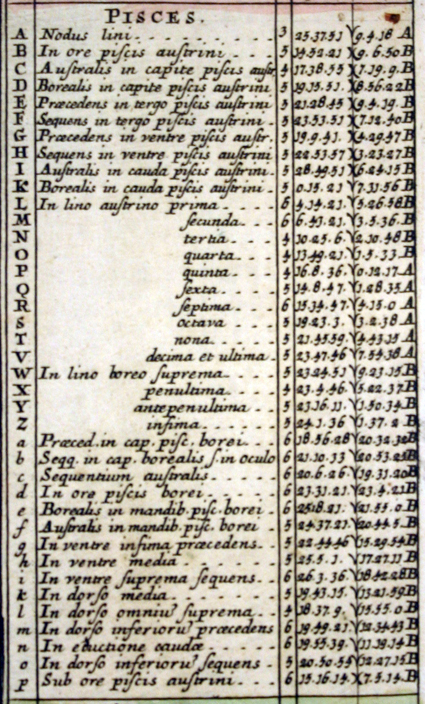 PISCES.
A Nodus lini 3 25.37.51 9.4.18 A
B In ore piscis austrini 5 14.52.21 9.6.50 B
C Australis in capite piscis austr. 4 17.38.55 7.19.9. B
D Borealis in capite piscis austrini 5 19.15.51. 8.56.22 B
E Præcedens in tergo piscis austrini 5 21.28.45 9.4.19. B
F Sequens in tergo piscis austrini 5 23.53.51 7.12.40 B
G Præcedens in ventre piscis austr. 5 19.9.41. 4.29.47 B
H Sequens in ventre piscis austrini 5 22.53.57 3.23.27 B
I Australis in cauda piscis austrini 5 28.49.51 6.24.15 B
K Borealis in cauda piscis austrini 5 0.15.21 7.31.56 B
L In lino austrino prima 6 4.14.21. 5.26.58 B
M secunda 6 6.43.21. 3.5.36 B
N tertia 4 10.25.6. 2.10.48 B
O quarta 4 13.49.21. 1.5.33. B
P quinta 4 16.8.36. 0.12.17 A
Q sexta 5 14.8.47. 1.28.35 A
R septima 6 15.34.47. 4.15.0 A
S octava 5 19.23.3. 3.2.38 A
T nona 5 21.45.59. 4.43.15 A
V decima et ultima 5 23.47.46 7.54.38 A
W In lino boreo suprema 5 23.24.51 9.23.15 B
X penultima 4 23.4.46 5.22.37 B
Y antepenultima 5 23.16.11 1.50.34 B
Z infima 5 24.1.36 1.37.2 B
a Præced. in cap. pisc. borei 6 18.56.28 20.32.32 B
b Seqq. in cap. borealis s. in oculo 6 21.10.33 20.53.25 B
c Sequentium australis 6 20.6.26 19.31.20 B
d In ore piscis borei 6 23.31.21 23.4.21 B
e Borealis in mandib. pisc. borei 6 25.18.21. 21.55.0. B
f Australis in mandib. pisc. borei 5 24.37.21. 20.44.5. B
g In ventre infima præcedens 5 22.44.46 15.29.54 B
h In ventre media 5 25.5.1. 17.27.11 B
i In ventre suprema sequens 6 26.3.36 18.42.28 B
k In dorso media 5 19.43.15. 13.21.59 B
l In dorso omniū suprema 4 18.37.9. 15.55.0 B
m In dorso inferiorū præcedens 6 19.49.21 12.34.43 B
n In eductione caudæ 6 19.55.39. 11.19.14 B
o In dorso inferiorū sequens 5 20.50.55 12.27.15 B
p Sub ore piscis austrini 6 15.16.14. 7.5.14 B